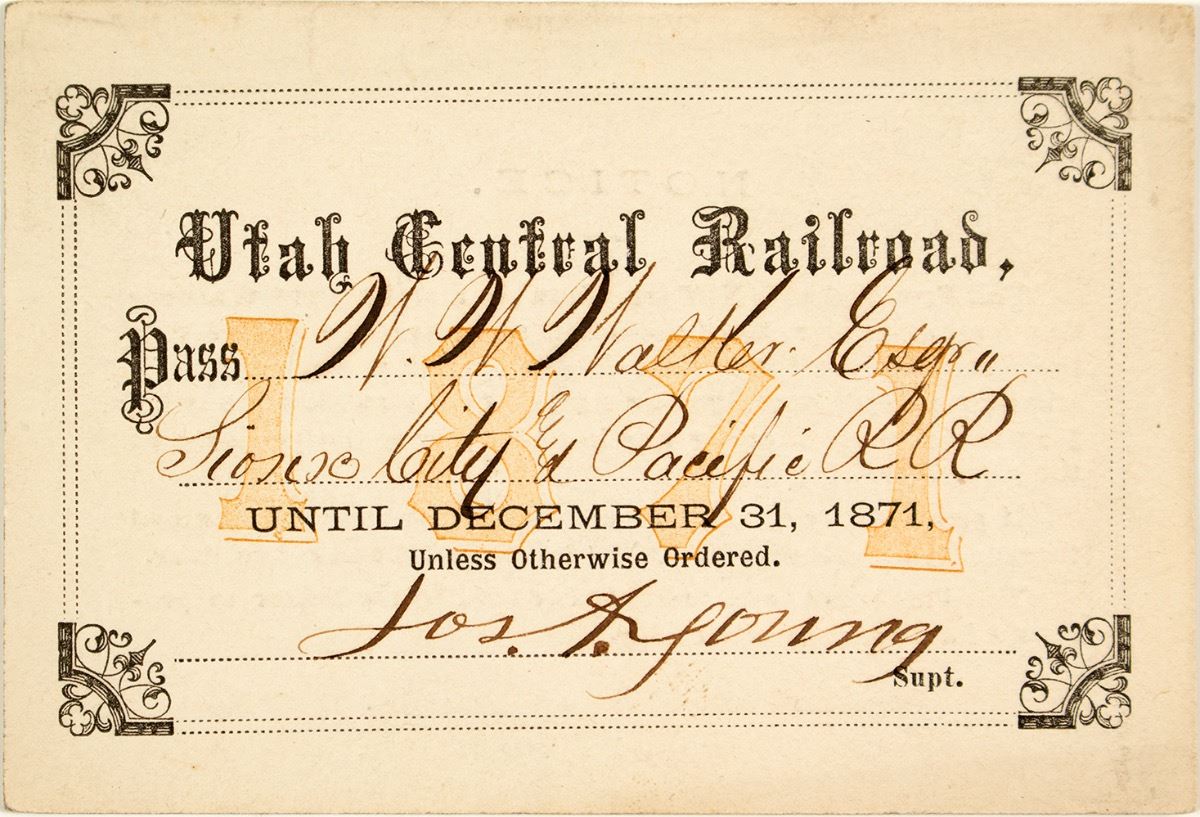 NOTICE.
Utah Central Railroad,
Pass W. W. Walker. Esqr„
Sioux City & Pacific RR
1871
UNTIL DECEMBER 31, 1871,
Unless Otherwise Ordered.
Jos. A. Young
Supt.